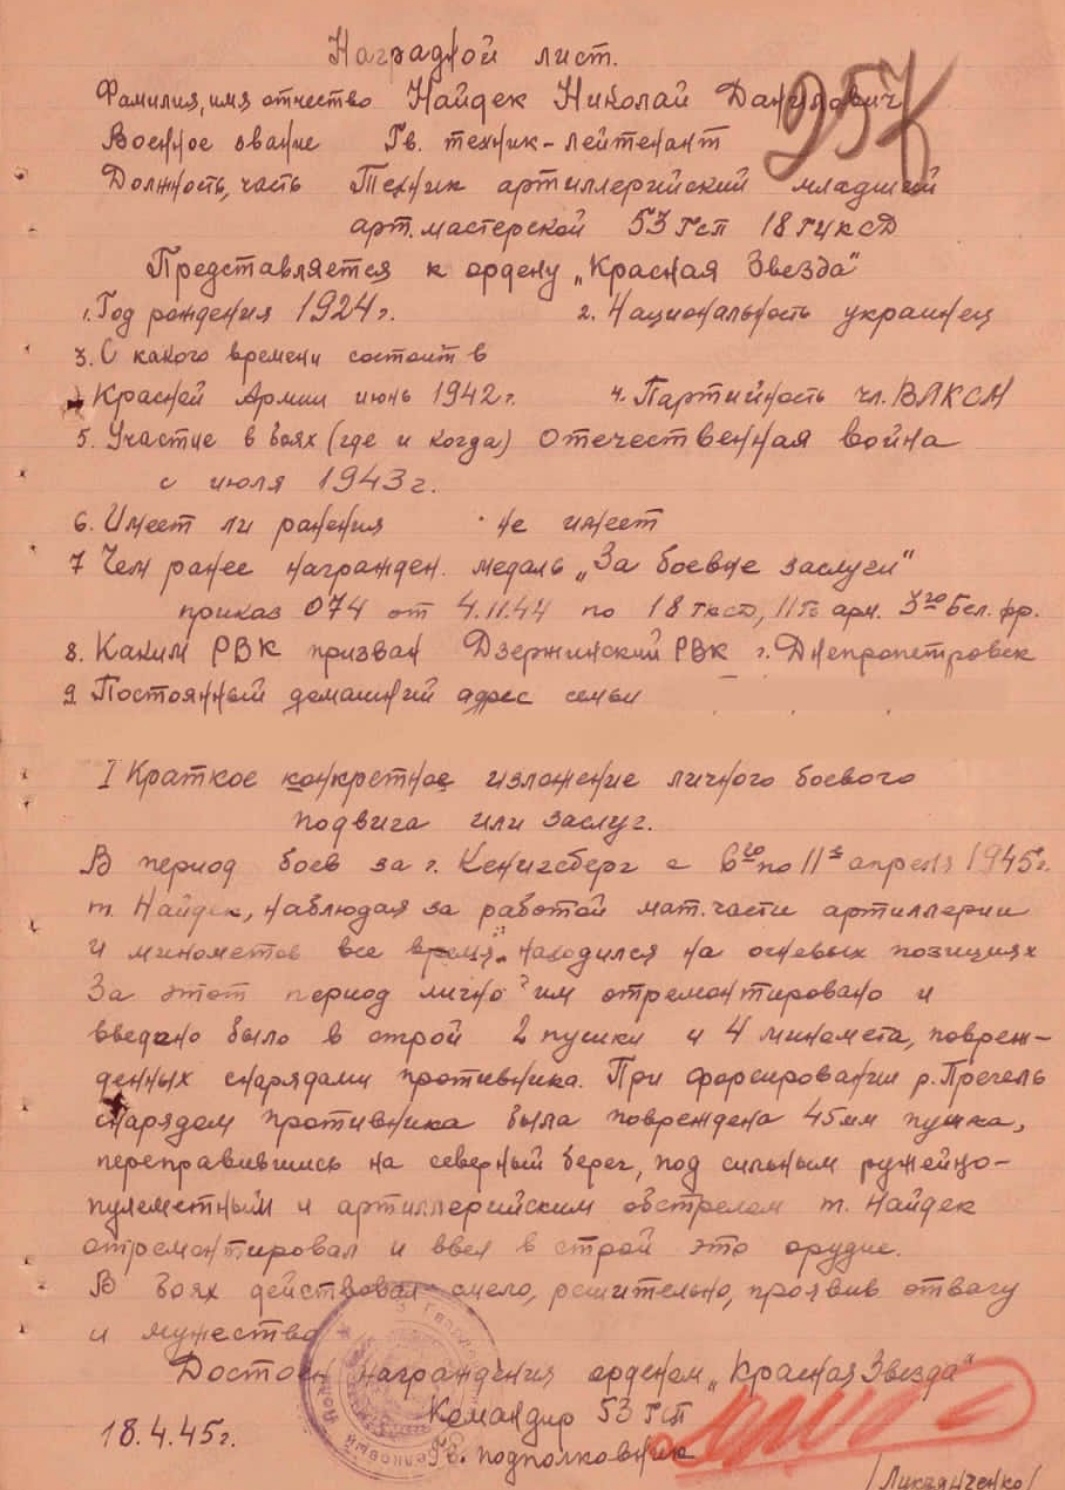 Наградной лист.
257
Фамилия, имя отчество Найдек Николай Данилович
Военное звание Гв. техник-лейтенант
Должность, часть Техник артиллерийский младший
арт. мастерской 53 гсп 18 гцксд
Представляется к ордену „Красная Звезда"
1. Год рождения 1924 г. 2. Национальность украинец
3. С какого времени состоит в
Красной Армии июнь 1942 г. 4. Партийность чл. ВЛКСМ
5. Участие в боях (где и когда) Отечественная война
с июля 1943 г.
6. Имеет ли ранения не имеет
7 Чем ранее награжден. медаль „За боевые заслуги"
приказ 074 от 4.11.44 по 18 гксд, 11 Гв арм. 3го Бел. фр.
8. Каким РВК призван Дзержинский РВК г. Днепропетровск
9 Постоянный домашний адрес семьи
I Краткое конкретное изложение личного боевого
подвига или заслуг.
В период боев за г. Кенигсберг с 6го по 11е апреля 1945 г.
т. Найдек, наблюдая за работой мат. части артиллерии
и минометов все время находился на огневых позициях
За этот период лично им отремонтировано и
введено было в строй 2 пушки и 4 миномета, повреж-
денных снарядами противника. При форсировании р. Прегель
снарядом противника была повреждена 45 мм пушка,
переправившись на северный берег, под сильным ружейно-
пулеметным и артиллерийским обстрелом т. Найдек
отремонтировал и ввел в строй это орудие.
В боях действовал смело, решительно, проявив отвагу
и мужество
Достоин награждения орденом „Красная Звезда"
Командир 53 гсп
18.4.45 г. Гв. подполковник
/Лукьянченко/